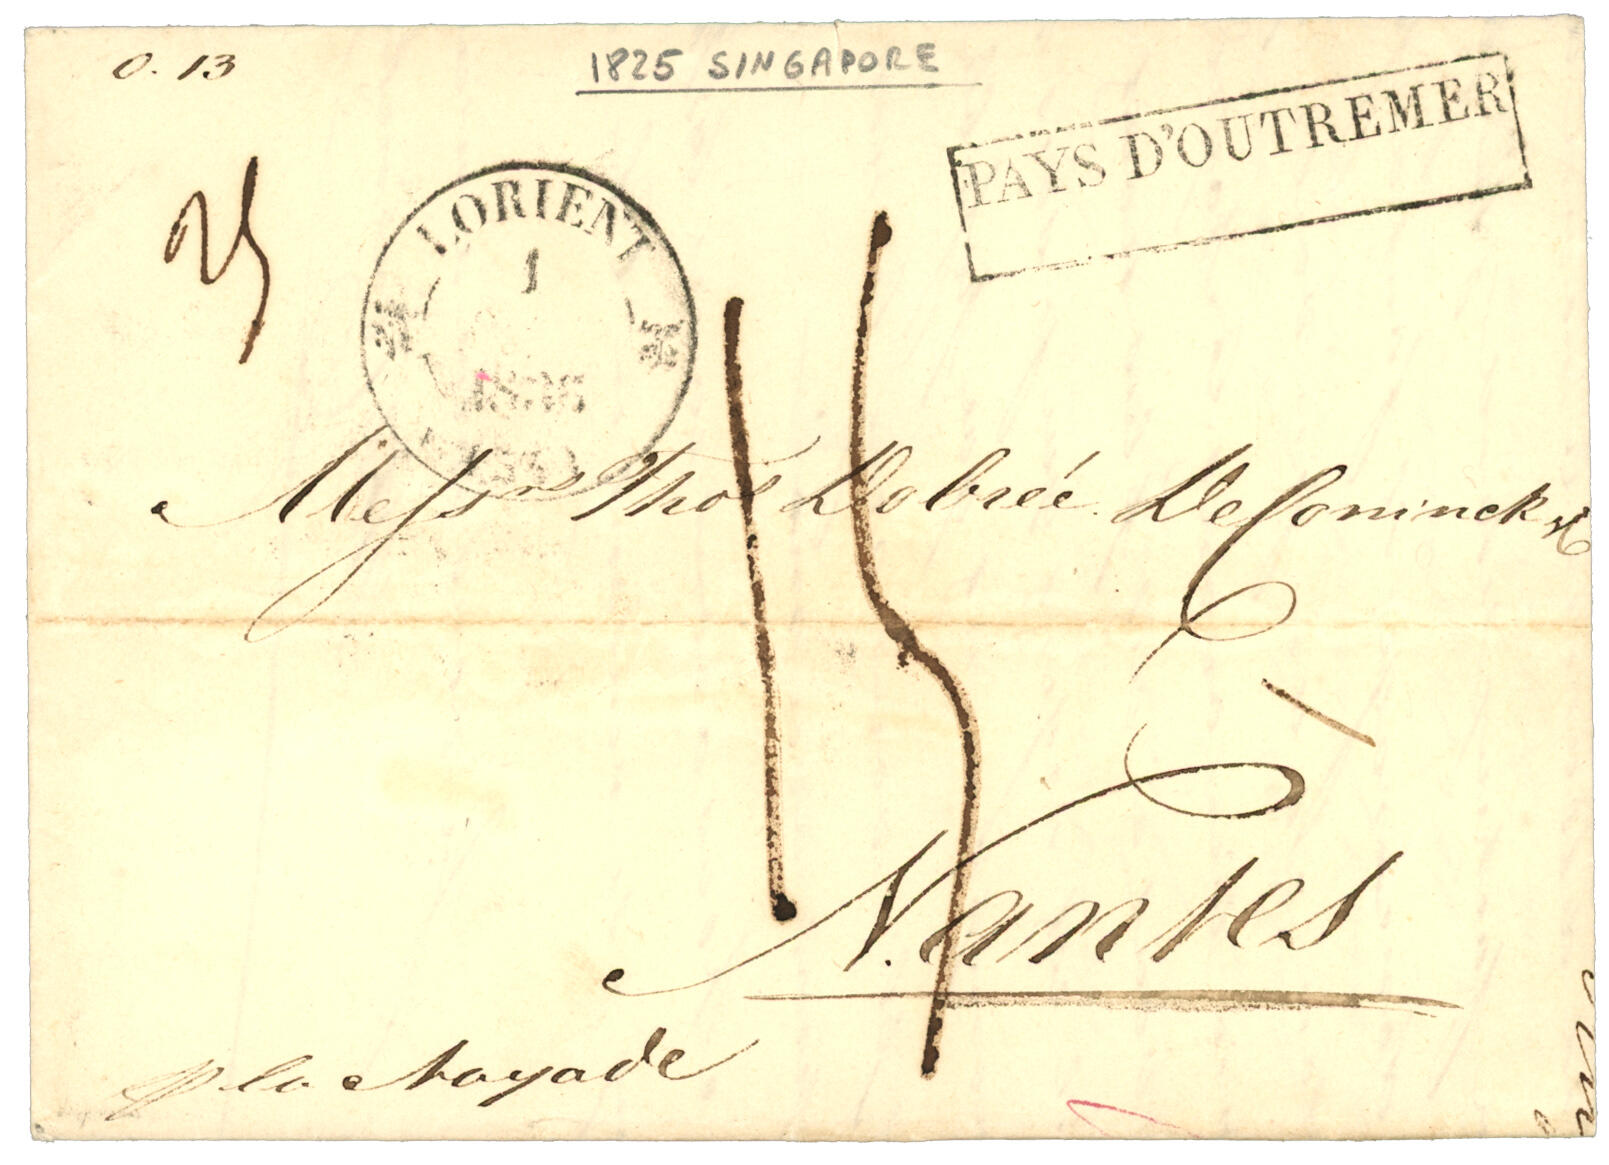 O. 13
1825 SINGAPORE
PAYS D'OUTREMER
LORIENT
1
15
Messrs Thos Dobrée DeConinck &
Nantes
p la Nayade